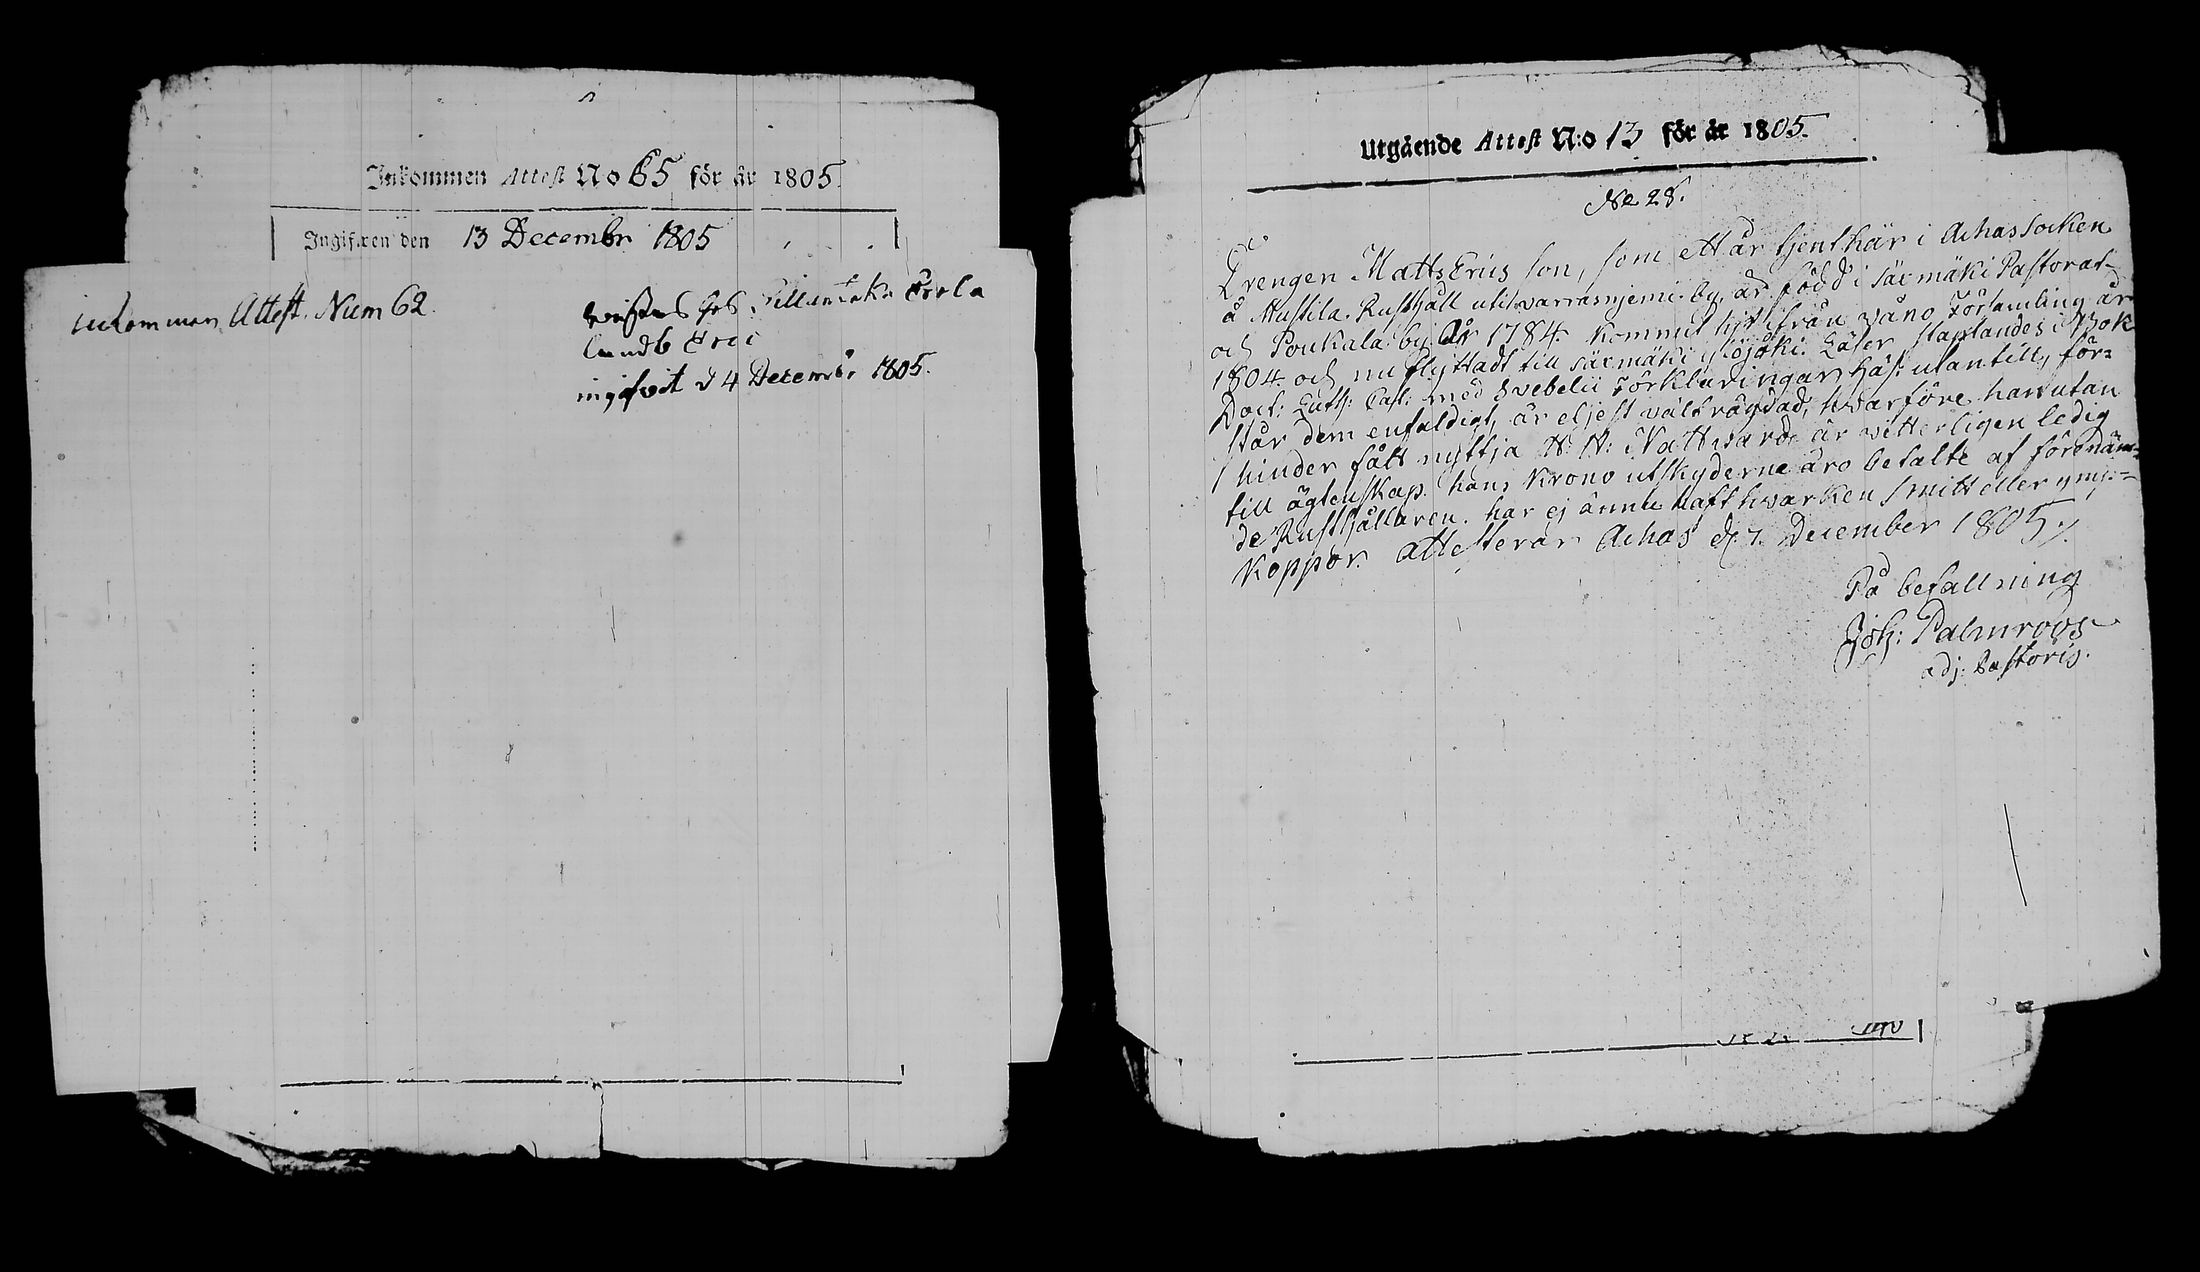 Inkommen Attest No 65 för år 1805.
Ingifven den 13 Decembr 1805
inkommen Attest. Num 62.
Eric
ingifvit d 4 Decembr 1805.
Utgående Attest N:o 13 för år 1805.
No 28.
Drengen Matts Erics son, som ett år tjent här i Achas Socken
å Mustila Rusthåll uti varrasnjemi by, är född i säxmäki Pastorat
och Poukala by År 1784. kommit hit ifrån våno Församling år
1804. och nu flyttadt till säxmäki. Läser staflandes i Bok
Doct: Luth: Cat: med Svebelii Förklaringar häst utantill, för=
står dem enfaldigt, är eljest väl frägdad, hvarföre han utan
hinder fått nyttja H: H: Nattvard är vitterligen ledig
till ägtenskap. hans Krono utskyderne äro betalte af förenäm=
de Rusthållaren. har ej ännu haft hvarken smitt eller ymp=
Koppor. attesterar Achas d. 7. December 1805./.
På befallning
Joh: Palmroos
adj: Pastoris.